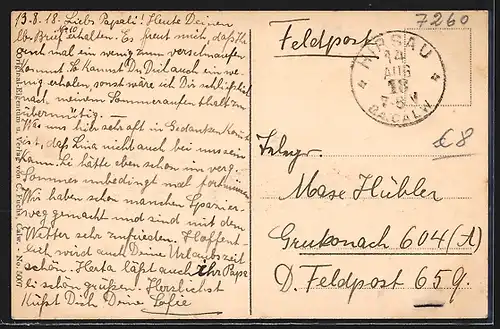 13.8.18. Liebs Papale! Heute Deinen
lb. Brief erhalten. Es freut mich, daß Ihr
auch mal ein wenig zum verschnaufen
kommt. So kannst Du Dich auch ein we-
nig erholen, sonst wäre ich Dir schließlich
nach meinem Sommeraufenthalt zu
übermütig.
Was uns hier sehr oft in Gedanken
ist, daß Lina nicht auch bei uns sein
kann. Sie hätte eben schon im verg.
Sommer unbedingt mal fort müssen
Wir haben schon manchen Spazier-
weg gemacht und sind mit dem
Wetter sehr zufrieden. Hoffent-
lich wird auch Deine Urlaubszeit
schön. Herta läßt auch ihr Papa-
li schön grüßen. Herzlichst
küßt Dich Deine Sofie
Original-Eigentum u. Verlag von C. Fuchs, Calw. No. 0007
7260
Feldpost
HIRSAU
14
AUG
18
7-8 V
OA. CALW
€8
Telegr.
Maxe Hübler
Grukonach 604 (A)
D. Feldpost 659.